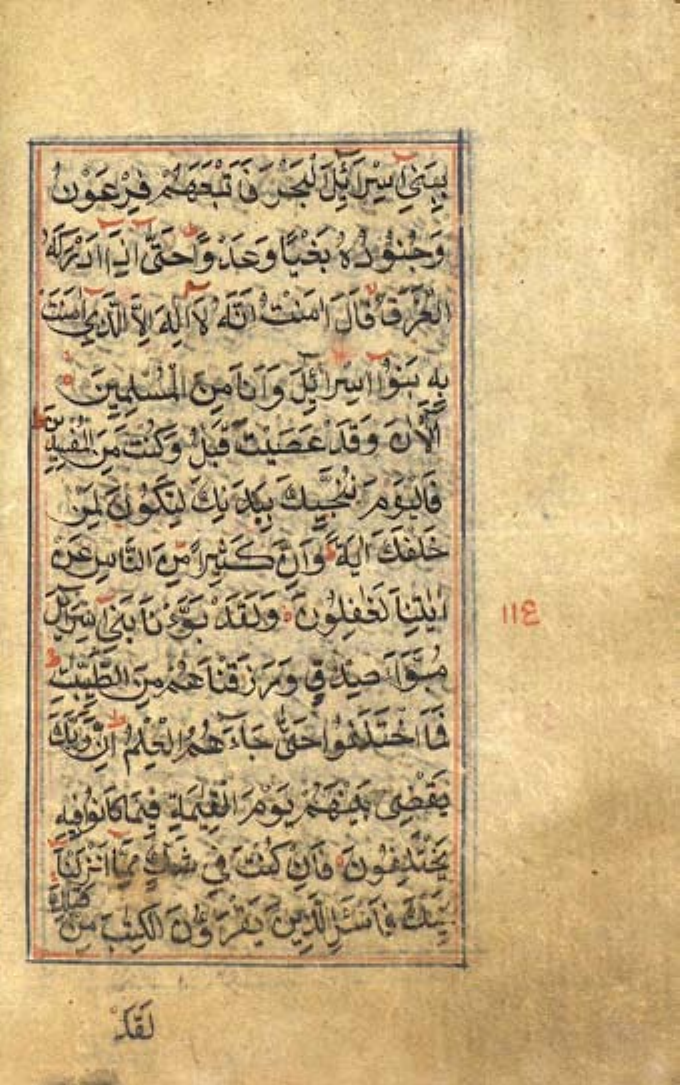 بِبَنِيْ اِسْرَآئِلَ الْبَحْرَ فَاَتْبَعَهُمْ فِرْعَوْنُ
وَجُنُوْدُهٗ بَغْيًا وَعَدْوًا حَتّٰى اِذَا اَدْرَكَهُ
الْغَرَقُ قَالَ اٰمَنْتُ اَنَّهٗ لَا اِلٰهَ اِلَّا الَّذِيْ اٰمَنَتْ
بِهٖ بَنُوْا اِسْرَآئِلَ وَاَنَا مِنَ الْمُسْلِمِيْنَ
اٰلْاٰنَ وَقَدْ عَصَيْتَ قَبْلُ وَكُنْتَ مِنَ الْمُفْسِدِيْنَ
فَالْيَوْمَ نُنَجِّيْكَ بِبَدَنِكَ لِتَكُوْنَ لِمَنْ
خَلْفَكَ اٰيَةً وَاِنَّ كَثِيْرًا مِّنَ النَّاسِ عَنْ
اٰيٰتِنَا لَغٰفِلُوْنَ وَلَقَدْ بَوَّءْنَا بَنِيْ اِسْرَآئِلَ
مُبَوَّاَ صِدْقٍ وَّرَزَقْنَاهُمْ مِنَ الطَّيِّبٰتِ
فَمَا اخْتَلَفُوْا حَتّٰى جَآءَهُمُ الْعِلْمُ اِنَّ رَبَّكَ
يَقْضِىْ بَيْنَهُمْ يَوْمَ الْقِيٰمَةِ فِيْمَا كَانُوْا فِيْهِ
يَخْتَلِفُوْنَ فَاِنْ كُنْتَ فِيْ شَكٍّ مِّمَّا اَنْزَلْنَا
اِلَيْكَ فَاسْئَلِ الَّذِيْنَ يَقْرَؤُنَ الْكِتٰبَ مِنْ قَبْلِكَ
لَقَدْ
١١٤